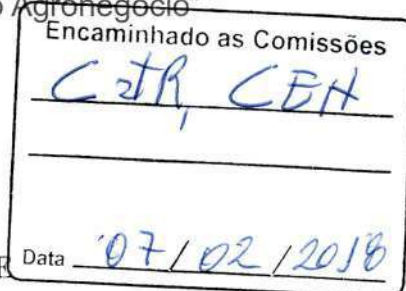 Agronegócio
Encaminhado as Comissões
CJR, CEH
Data 07/02/2018